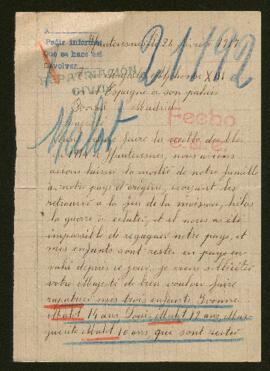 A
Pedir informes
que se hace así
Devolver
REPATRIACIÓN
CIVIL
21192
Malot
Fecho
Alphonse XIII
Espagne en son palais
Madrid
faire la
nous avions
laissé la moitié de notre famille
à notre pays d'origine, croyant les
retrouver à la fin de la moisson, hélas
la guerre a éclaté, et il nous a été
impossible de regagner notre pays, et
mes enfants sont restés en pays en-
vahi depuis ce jour, je viens solliciter
votre Majesté de bien vouloir faire
rapatrier mes trois enfants Yvonne
Malot 14 ans Louis Malot 12 ans, Mar-
guerite Malot 10 ans que sont restés